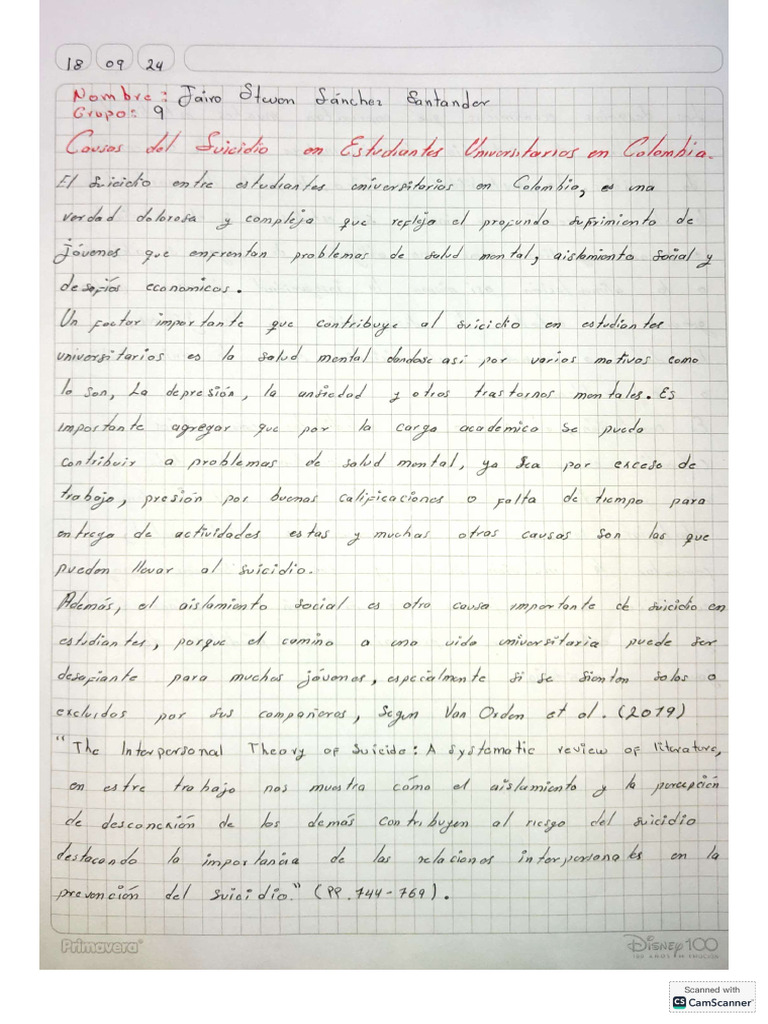 18 09 24
Nombre: Jairo Stevon Sánchez Santander
Grupo: 9
Causas del Suicidio en Estudiantes Universitarios en Colombia.
El suicidio entre estudiantes universitarios en Colombia, es una
verdad dolorosa y compleja que refleja el profundo sufrimiento de
jóvenes que enfrentan problemas de salud mental, aislamiento social y
desafíos economicos.
Un factor importante que contribuye al suicidio en estudiantes
universitarios es la salud mental dandose asi por varios motivos como
lo son, La depresión, la ansiedad y otros trastornos mentales. Es
importante agregar que por la carga academica se puede
contribuir a problemas de salud mental, ya sea por exceso de
trabajo, presión por buenas calificaciones o falta de tiempo para
entrega de actividades estas y muchas otras causas son las que
pueden llevar al suicidio.
Además, el aislamiento social es otra causa importante de suicidio en
estudiantes, porque el camino a una vida universitaria puede ser
desafiante para muchos jóvenes, especialmente si se sienten solos o
excluidos por sus compañeros, Segun Van Orden et al. (2019)
"The Interpersonal Theory of Suicide: A systematic review of literature,
en estre trabajo nos muestra cómo el aislamiento y la percepción
de desconexión de los demás contribuyen al riesgo del suicidio
destacando la importancia de las relaciones interpersonales en la
prevención del suicidio." (PP. 744-769).
Primavera
Disney 100
100 AÑOS DE EMOCIÓN
Scanned with
CS CamScanner